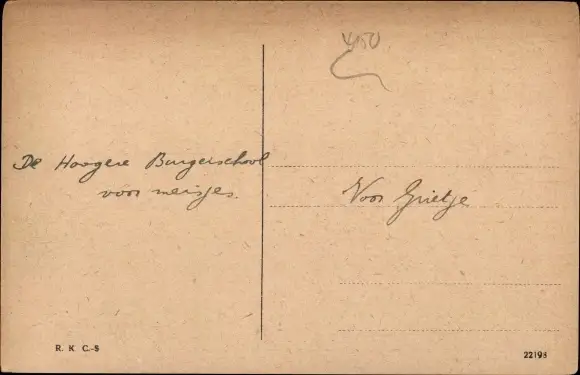 De Hoogere Burgerschool
voor meisjes.
450
Voor Grietje
R. K. C.-S
22193